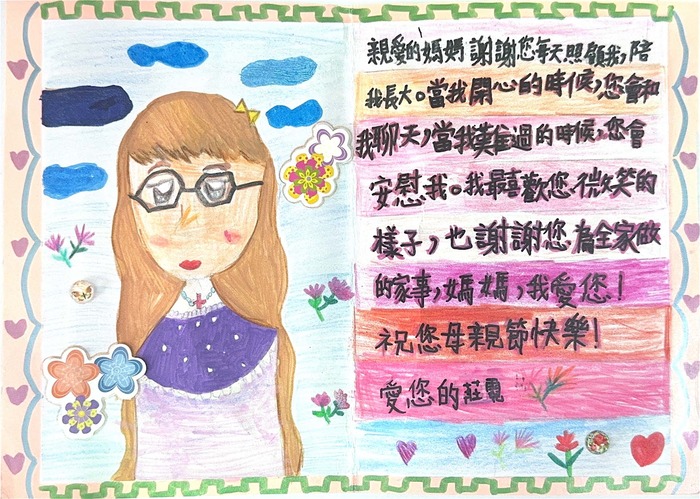 親愛的媽媽謝謝您每天照顧我，陪
我長大。當我開心的時候，您會和
我聊天，當我難過的時候，您會
安慰我。我最喜歡您微笑的
樣子，也謝謝您為全家做
的家事，媽媽，我愛您！
祝您母親節快樂！
愛您的莊